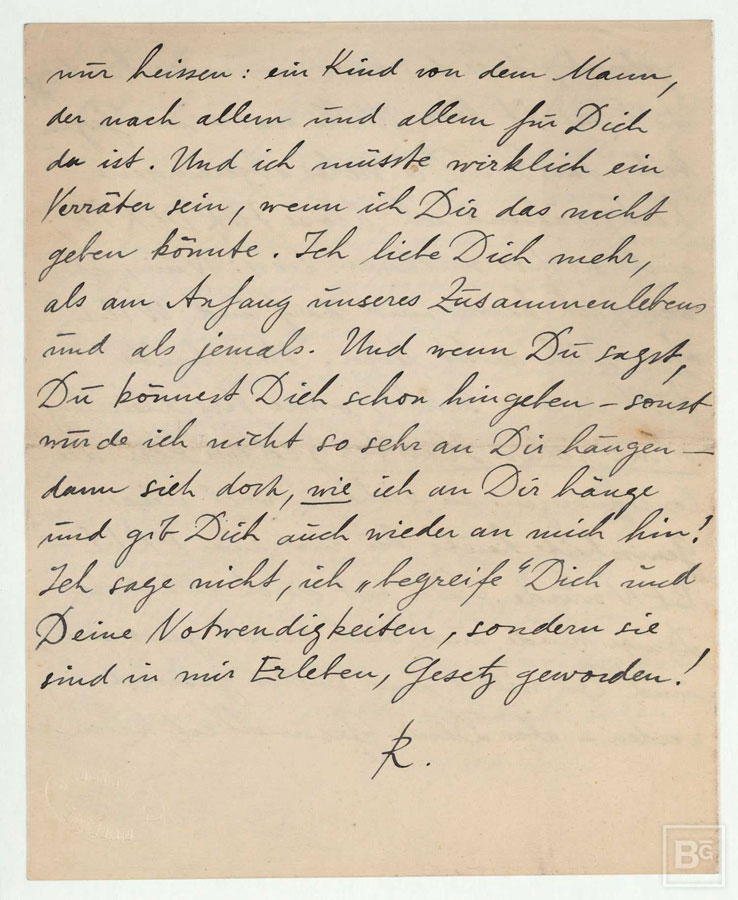 nur heissen: ein Kind von dem Mann,
der nach allem und allem für Dich
da ist. Und ich müsste wirklich ein
Verräter sein, wenn ich Dir das nicht
geben könnte. Ich liebe Dich mehr,
als am Anfang unseres Zusammenlebens
und als jemals. Und wenn Du sagst,
Du könnest Dich schon hingeben – sonst
würde ich nicht so sehr an Dir hängen –
dann sieh doch, wie ich an Dir hänge
und gib Dich auch wieder an mich hin!
Ich sage nicht, ich „begreife“ Dich und
Deine Notwendigkeiten, sondern sie
sind in mir Erleben, Gesetz geworden!
R.
BG